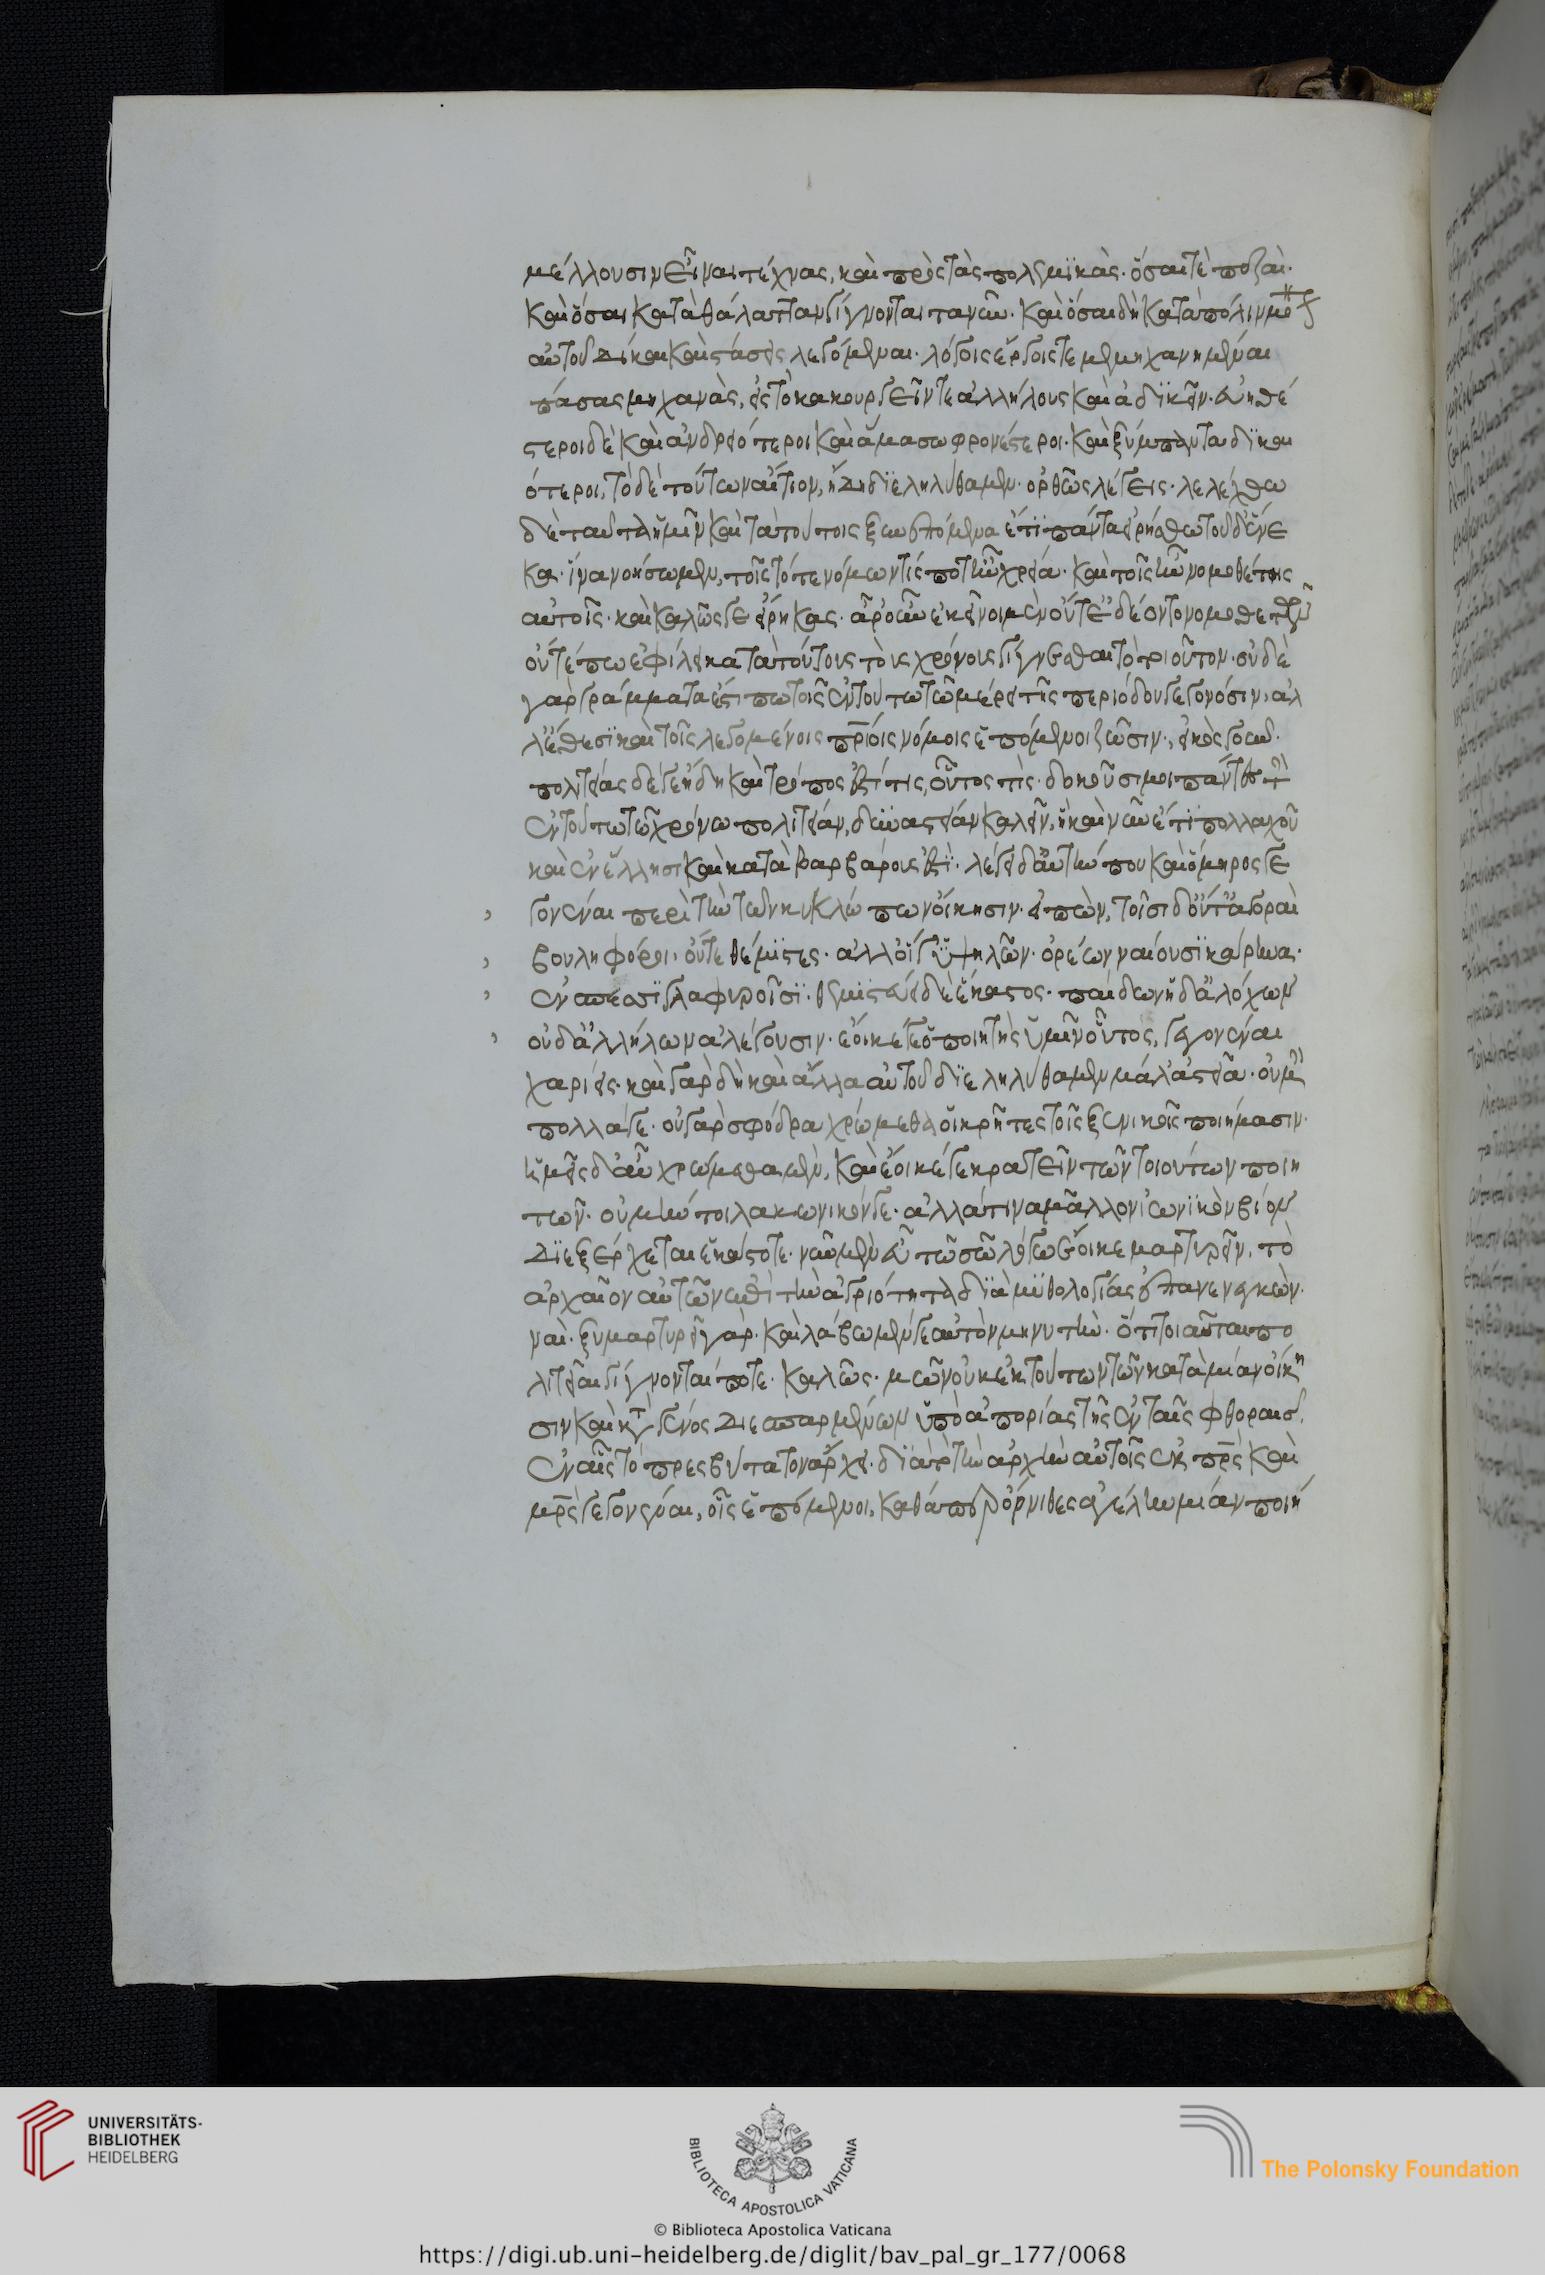 μέλλουσιν εἶναι τέχνας, καὶ πρὸς τὰς πολεμϊκάς· ὅσαι τὲ πεζαὶ·
καὶ ὅσαι κατὰ θάλατταν γίγνονται τανῦν· καὶ ὅσαι δὴ κατὰ πόλιν
αὐτοῦ δίκαι καὶ στάσεις λεγόμεναι· λόγοις ἔργοις τε μεμηχανημέναι
πάσας μηχανὰς, εἰς τὸ κακουργεῖν τε ἀλλήλους καὶ ἀδϊκεῖν· εὐηθέ
στεροι δὲ καὶ ἀνδρειότεροι καὶ ἅμα σωφρονέστεροι· καὶ ξύμπαντα δϊκαι
ότεροι, τὸ δὲ τούτων αἴτιον, ἤδη δϊεληλύθαμεν· ὀρθῶς λέγεις· λελέχθω
δὲ ταῦτα ἡμῖν καὶ τὰ τούτοις ξυνεπόμενα ἔτϊ πάντα εἰρήσθω τοῦδ' ἕνε
κα· ἵνα νοήσωμεν, τοῖς τότε νόμων τίς ποτ' ἦν χρεία· καὶ τοῖς ἦν νομοθέτης
αὐτοῖς· καὶ καλῶς γε εἴρηκας· ἆρ' οὖν ἐκεῖνοι μὲν οὔτ' ἐδέοντο νομοθετῶν
οὔτέ πω ἐφίλει κατὰ τούτους τοὺς χρόνους γίγνεσθαι τὸ τοιοῦτον· οὐδὲ
γὰρ γράμματα ἔστι πω τοῖς ἐν τούτω τῶ μέρει τῆς περιόδου γεγονόσιν· ἀλ
λ' ἔθεσϊ καὶ τοῖς λεγομένοις πρίοις νόμοις ἑπόμενοι ζῶσιν· εἰκὸς γοῦν·
πολιτείας δέ γε ἤδη καὶ τρόπος ἐστί τις, οὗτος τίς· δοκοῦσί μοι πάντες τὴν
ἐν τούτω τῶ χρόνω πολιτείαν, δυναστείαν καλεῖν, ἣ καὶ νῦν ἔτϊ πολλαχοῦ
καὶ ἐν ἕλλησι καὶ κατὰ βαρβάρους ἐστὶ· λέγει δ' αὐτήν που καὶ ὅμηρος γε
γονέναι περὶ τὴν τῶν κυκλώπων οἴκησιν· εἰπὼν, τοῖσι δ' οὔτ' ἀγοραὶ
βουληφόροι· οὔτε θέμϊστες· ἀλλ' οἵ γ' ὑψηλῶν· ὀρέων ναίουσϊ κάρηνα·
ἐν σπέσσϊ γλαφυροῖσϊ· θεμϊστεύει δὲ ἕκαστος· παίδων ἠδ' ἀλόχων
οὐδ' ἀλλήλων ἀλέγουσιν· ἔοικέ γε ὁ ποιητὴς ὑμῖν οὗτος, γεγονέναι
χαρίεις· καὶ γὰρ δὴ καὶ ἄλλα αὐτοῦ δϊεληλύθαμεν μάλ' ἀστεῖα· οὐ μὴν
πολλά γε· οὐ γὰρ σφόδρα χρώμεθα οἱ κρῆτες τοῖς ξενικοῖς ποιήμασιν·
ἡμεῖς δ' αὖ χρώμεθα μὲν, καὶ ἔοικέ γε κρατεῖν τῶν τοιούτων ποιη
τῶν· οὐ μήν τοι λακωνικόν γε· ἀλλά τινα μᾶλλον ἰωνϊκὸν βίον
δϊεξέρχεται ἑκάστοτε· νῦν μὲν εὖ τῶ σῶ λόγω ἔοικε μαρτυρεῖν, τὸ
ἀρχαῖον αὐτῶν ἐπὶ τὴν ἀγριότητα δϊὰ μϋθολογίας ἐπανενεγκὼν·
ναὶ· ξυμαρτυρεῖ γὰρ· καὶ λάβωμέν γε αὐτὸν μηνυτὴν· ὅτι τοιαῦται πο
λιτεῖαι γίγνονταί ποτε· καλῶς· μῶν οὐκ ἐκ τούτων τῶν κατὰ μίαν οἴκη
σιν καὶ κατὰ γένος διεσπαρμένων ὑπὸ ἀπορίας τῆς ἐν ταῖς φθοραῖς,
ἐν αἷς τὸ πρεσβύτατον ἄρχει· δϊὰ τὸ τὴν ἀρχὴν αὐτοῖς ἐκ πρς καὶ
μρς γεγονέναι, οἷς ἑπόμενοι, καθάπερ ὄρνιθες ἀγέλην μίαν ποιή
UNIVERSITÄTS-
BIBLIOTHEK
HEIDELBERG
BIBLIOTECA APOSTOLICA VATICANA
The Polonsky Foundation
© Biblioteca Apostolica Vaticana
https://digi.ub.uni-heidelberg.de/diglit/bav_pal_gr_177/0068